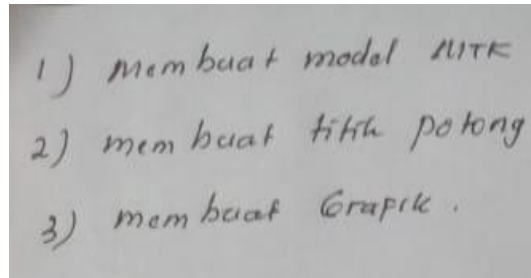 1) Membuat model MTK
2) membuat titik potong
3) membuat Grafik.